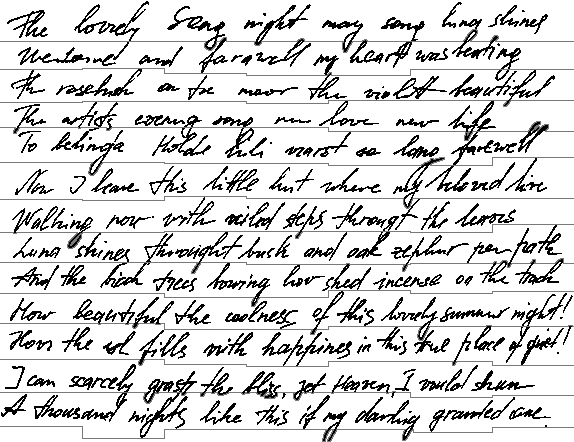 The lovely Song night may song luna shines
Welcome and farewell my heart was beating
The rosebush on the moor the violett beautiful
The artists evening song new love new life
To belinda Holde Lili warst so long farewell
Now I leave this little hut where my beloved live
Walking now with veiled steps througt the leaves
Luna shines throught bush and oak zephyr per path
And the birch trees bowing low shed incense on the track
How beautiful the coolness of this lovely summer night!
How the soul fills with happiness in this true place of quiet!
I can scarcely grasp the bliss, yet Heaven, I would shun
A thousand nights like this if my darling granted one.